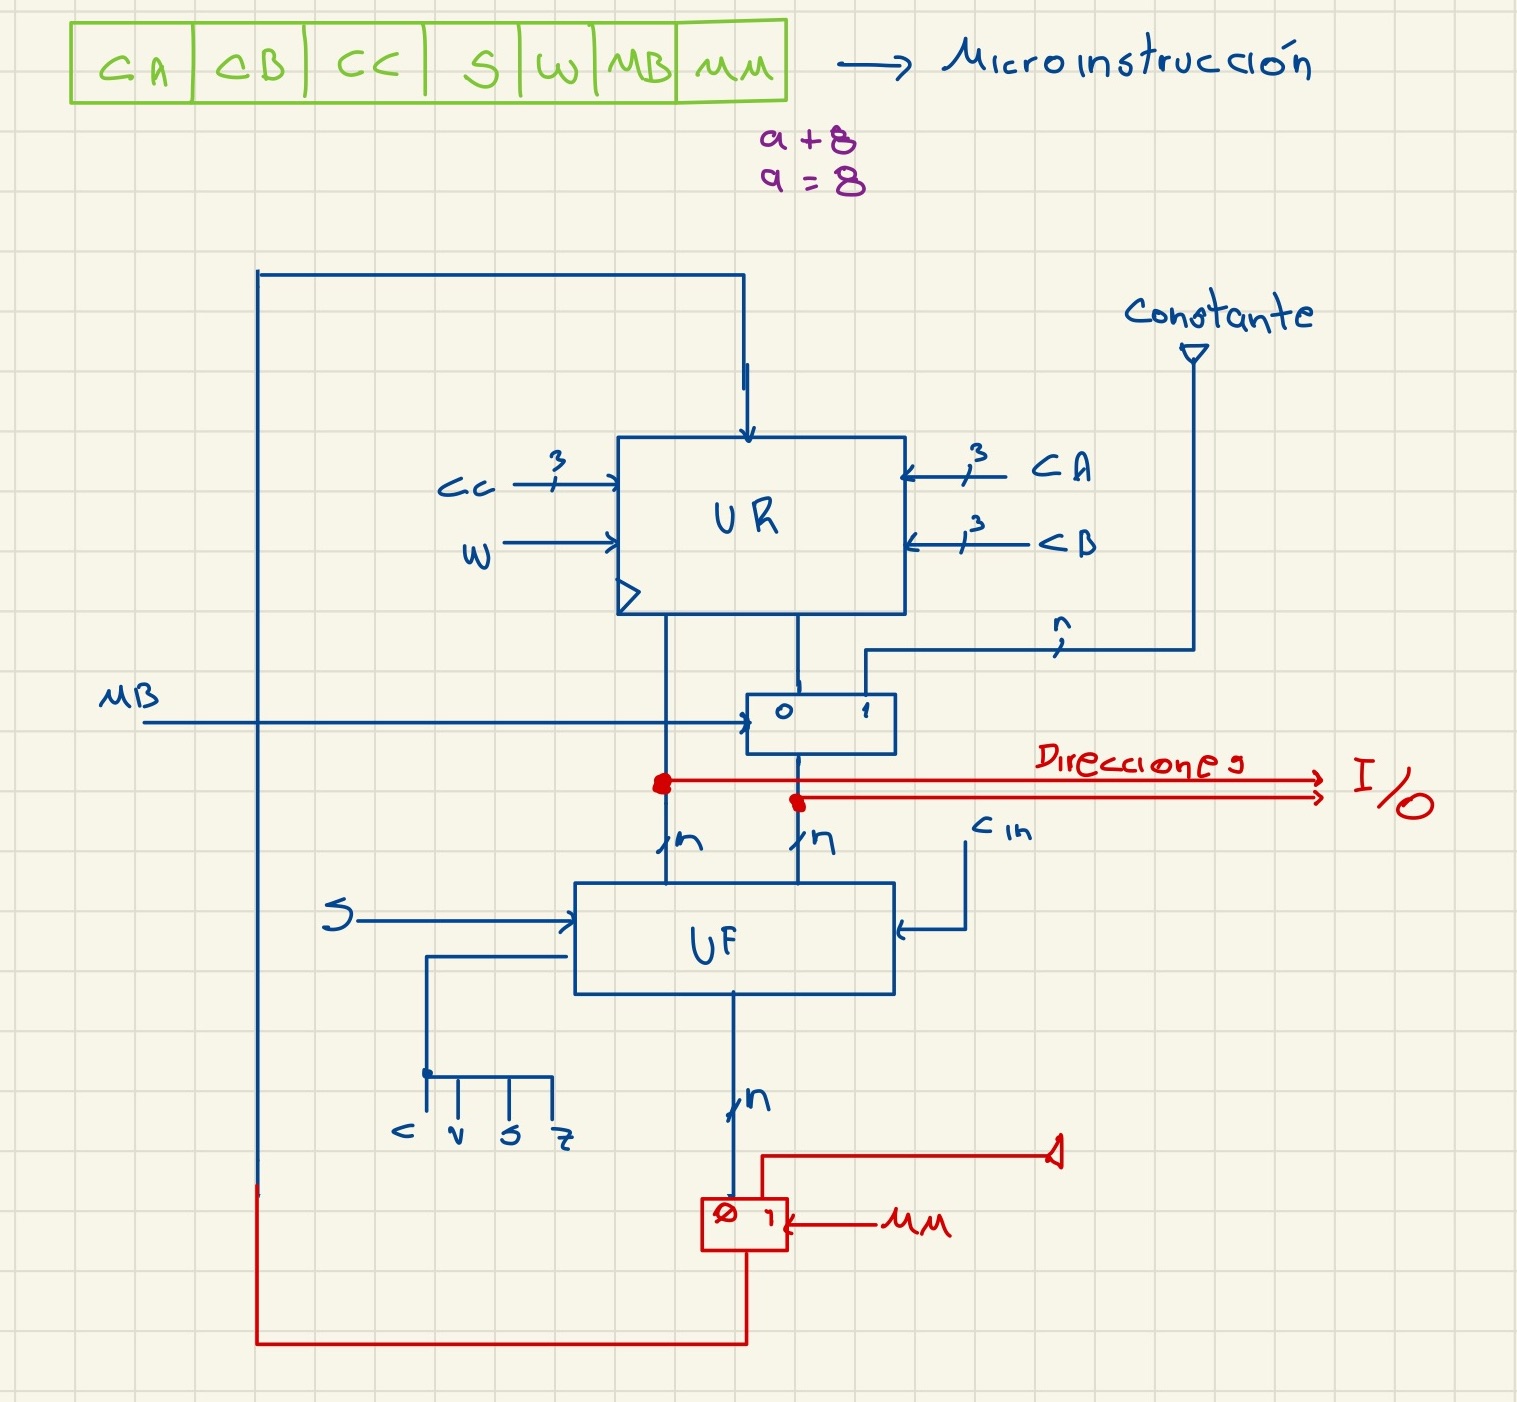 CA CB CC S W MB MM → Microinstrucción
a + 8
a = 8
Constante
CC 3
3 CA
W
UR
3 CB
n
MB
0 1
Direcciones
I/O
n n
Cin
S
UF
C V S Z
n
Ø 1
MM